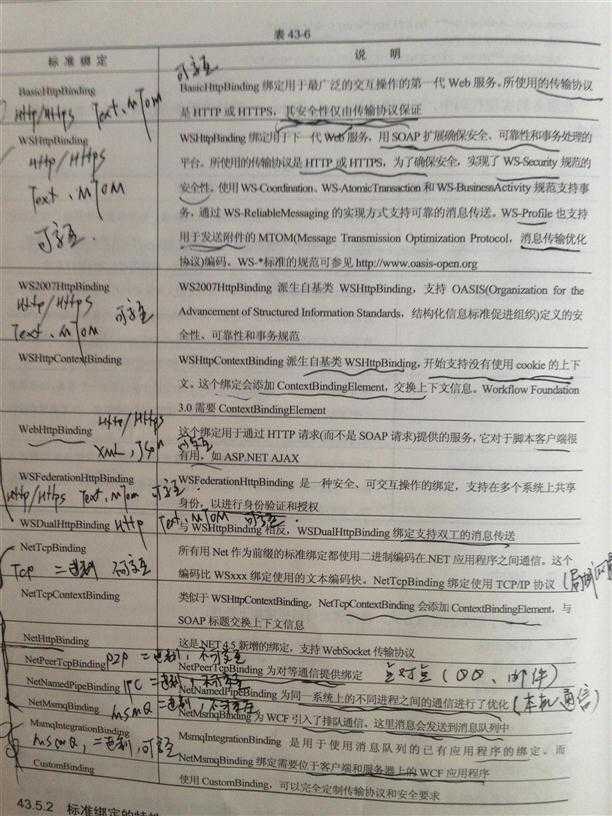 表 43-6
标准绑定 说明
可交互
BasicHttpBinding BasicHttpBinding 绑定用于最广泛的交互操作的第一代 Web 服务。所使用的传输协议
Http/Https Text、MTOM 是 HTTP 或 HTTPS，其安全性仅由传输协议保证
WSHttpBinding WSHttpBinding 绑定用于下一代 Web 服务，用 SOAP 扩展确保安全、可靠性和事务处理的
Http/Https 平台。所使用的传输协议是 HTTP 或 HTTPS，为了确保安全，实现了 WS-Security 规范的
Text、MTOM 安全性。使用 WS-Coordination、WS-AtomicTransaction 和 WS-BusinessActivity 规范支持事
务，通过 WS-ReliableMessaging 的实现方式支持可靠的消息传送。WS-Profile 也支持
可交互. 用于发送附件的 MTOM(Message Transmission Optimization Protocol，消息传输优化
协议)编码。WS-*标准的规范可参见 http://www.oasis-open.org
WS2007HttpBinding WS2007HttpBinding 派生自基类 WSHttpBinding，支持 OASIS(Organization for the
Http/Https 可交互 Advancement of Structured Information Standards，结构化信息标准促进组织)定义的安
Text、MTOM 全性、可靠性和事务规范
WSHttpContextBinding WSHttpContextBinding 派生自基类 WSHttpBinding，开始支持没有使用 cookie 的上下
文。这个绑定会添加 ContextBindingElement，交换上下文信息。Workflow Foundation
3.0 需要 ContextBindingElement
WebHttpBinding Http/Https 这个绑定用于通过 HTTP 请求(而不是 SOAP 请求)提供的服务，它对于脚本客户端很
XML、JSON 可交互 有用，如 ASP.NET AJAX
WSFederationHttpBinding WSFederationHttpBinding 是一种安全、可交互操作的绑定，支持在多个系统上共享
Http/Https Text、MTOM 可交互 身份，以进行身份验证和授权
WSDualHttpBinding Http Text、MTOM 可交互 与 WSHttpBinding 相反，WSDualHttpBinding 绑定支持双工的消息传送
NetTcpBinding 所有用 Net 作为前缀的标准绑定都使用二进制编码在.NET 应用程序之间通信。这个
TCP 二进制 不可交互 编码比 WSxxx 绑定使用的文本编码快。NetTcpBinding 绑定使用 TCP/IP 协议
NetTcpContextBinding 类似于 WSHttpContextBinding，NetTcpContextBinding 会添加 ContextBindingElement，与
SOAP 标题交换上下文信息
NetHttpBinding 这是.NET 4.5 新增的绑定，支持 WebSocket 传输协议
NetPeerTcpBinding P2P 二进制，不可交互 NetPeerTcpBinding 为对等通信提供绑定 点对点（QQ、邮件）
NetNamedPipeBinding IPC 二进制，不可交互 NetNamedPipeBinding 为同一系统上的不同进程之间的通信进行了优化（本机通信）
NetMsmqBinding MSMQ 二进制，不可交互 NetMsmqBinding 为 WCF 引入了排队通信。这里消息会发送到消息队列中
MsmqIntegrationBinding MsmqIntegrationBinding 是用于使用消息队列的已有应用程序的绑定。而
MSMQ，二进制，可交互 NetMsmqBinding 绑定需要位于客户端和服务器上的 WCF 应用程序
CustomBinding 使用 CustomBinding，可以完全定制传输协议和安全要求
43.5.2 标准绑定的特性